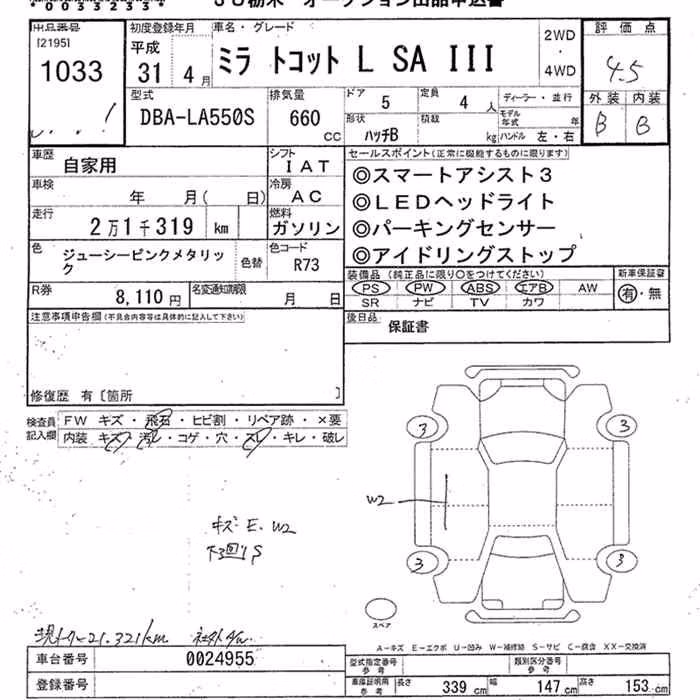 * 0 0 3 3 2 3 3 4 *
JU栃木 オークション出品申込書
出品番号
[2195]
1033
初度登録年月
平成
31 4月
車名・グレード
ミラ トコット L SA III
2WD
・
4WD
評価点
4.5
外装 内装
B B
型式
DBA-LA550S
排気量
660
CC
ドア 5
定員 4 人
ディーラー・並行
形状
ハッチB
積載
kg
モデル年式 年
ハンドル 左・右
車歴 自家用
シフト IAT
車検 年 月( 日)
冷房 AC
走行 2万1千319 km
燃料 ガソリン
色 ジューシーピンクメタリック
色替
色コード R73
R券 8,110円
名変通知期限 月 日
セールスポイント(正常に機能するものに限ります)
◎スマートアシスト3
◎LEDヘッドライト
◎パーキングセンサー
◎アイドリングストップ
装備品(純正品に限り○をつけてください)
PS PW ABS エアB AW
SR ナビ TV カワ
新車保証書
有・無
後日品 保証書
注意事項申告欄(不具合内容等は具体的に記入して下さい)
修復歴 有〔箇所 〕
検査員記入欄
FW キズ・飛石・ヒビ割・リペア跡・×要
内装 キズ・汚レ・コゲ・穴・スレ・キレ・破レ
3 3
W2
3 3
キズ E. W2
下回りS
スペア
現メーター21.321km
A-キズ E-エクボ U-凹み W-補修跡 S-サビ C-腐食 XX-交換済
車台番号 0024955
登録番号
型式指定番号 参考
類別区分番号 参考
車庫証明用 参考
長さ 339 cm
幅 147 cm
高さ 153 cm